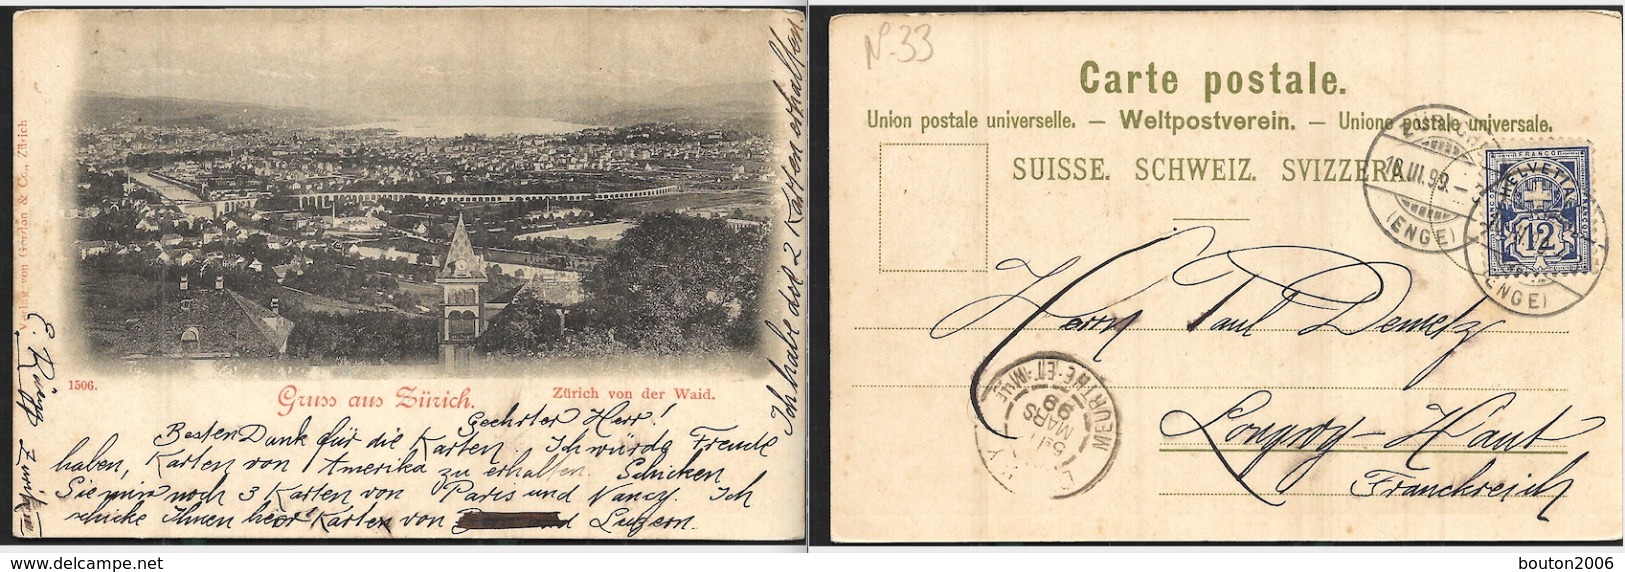 Verlag von Gordon & Co., Zürich
1506.
Gruss aus Zürich.
Zürich von der Waid.
Geehrter Herr!
Besten Dank für die Karten. Ich würde Freude
haben, Karten von Amerika zu erhalten. Schicken
Sie mir noch 3 Karten von Paris und Nancy. Ich
schicke Ihnen hier Karten von Luzern.
Ich habe dos 2 Karten erhalten.
E.
N-33
Carte postale.
Union postale universelle. — Weltpostverein. — Unione postale universale.
SUISSE. SCHWEIZ. SVIZZERA.
18.III.99.
(ENGE)
FRANCO
HELVETIA
12
(ENGE)
Herrn Paul Demetz
Longwy-Haut
Franckreich
MEURTHE-ET-MLLE
MARS
99
bouton2006